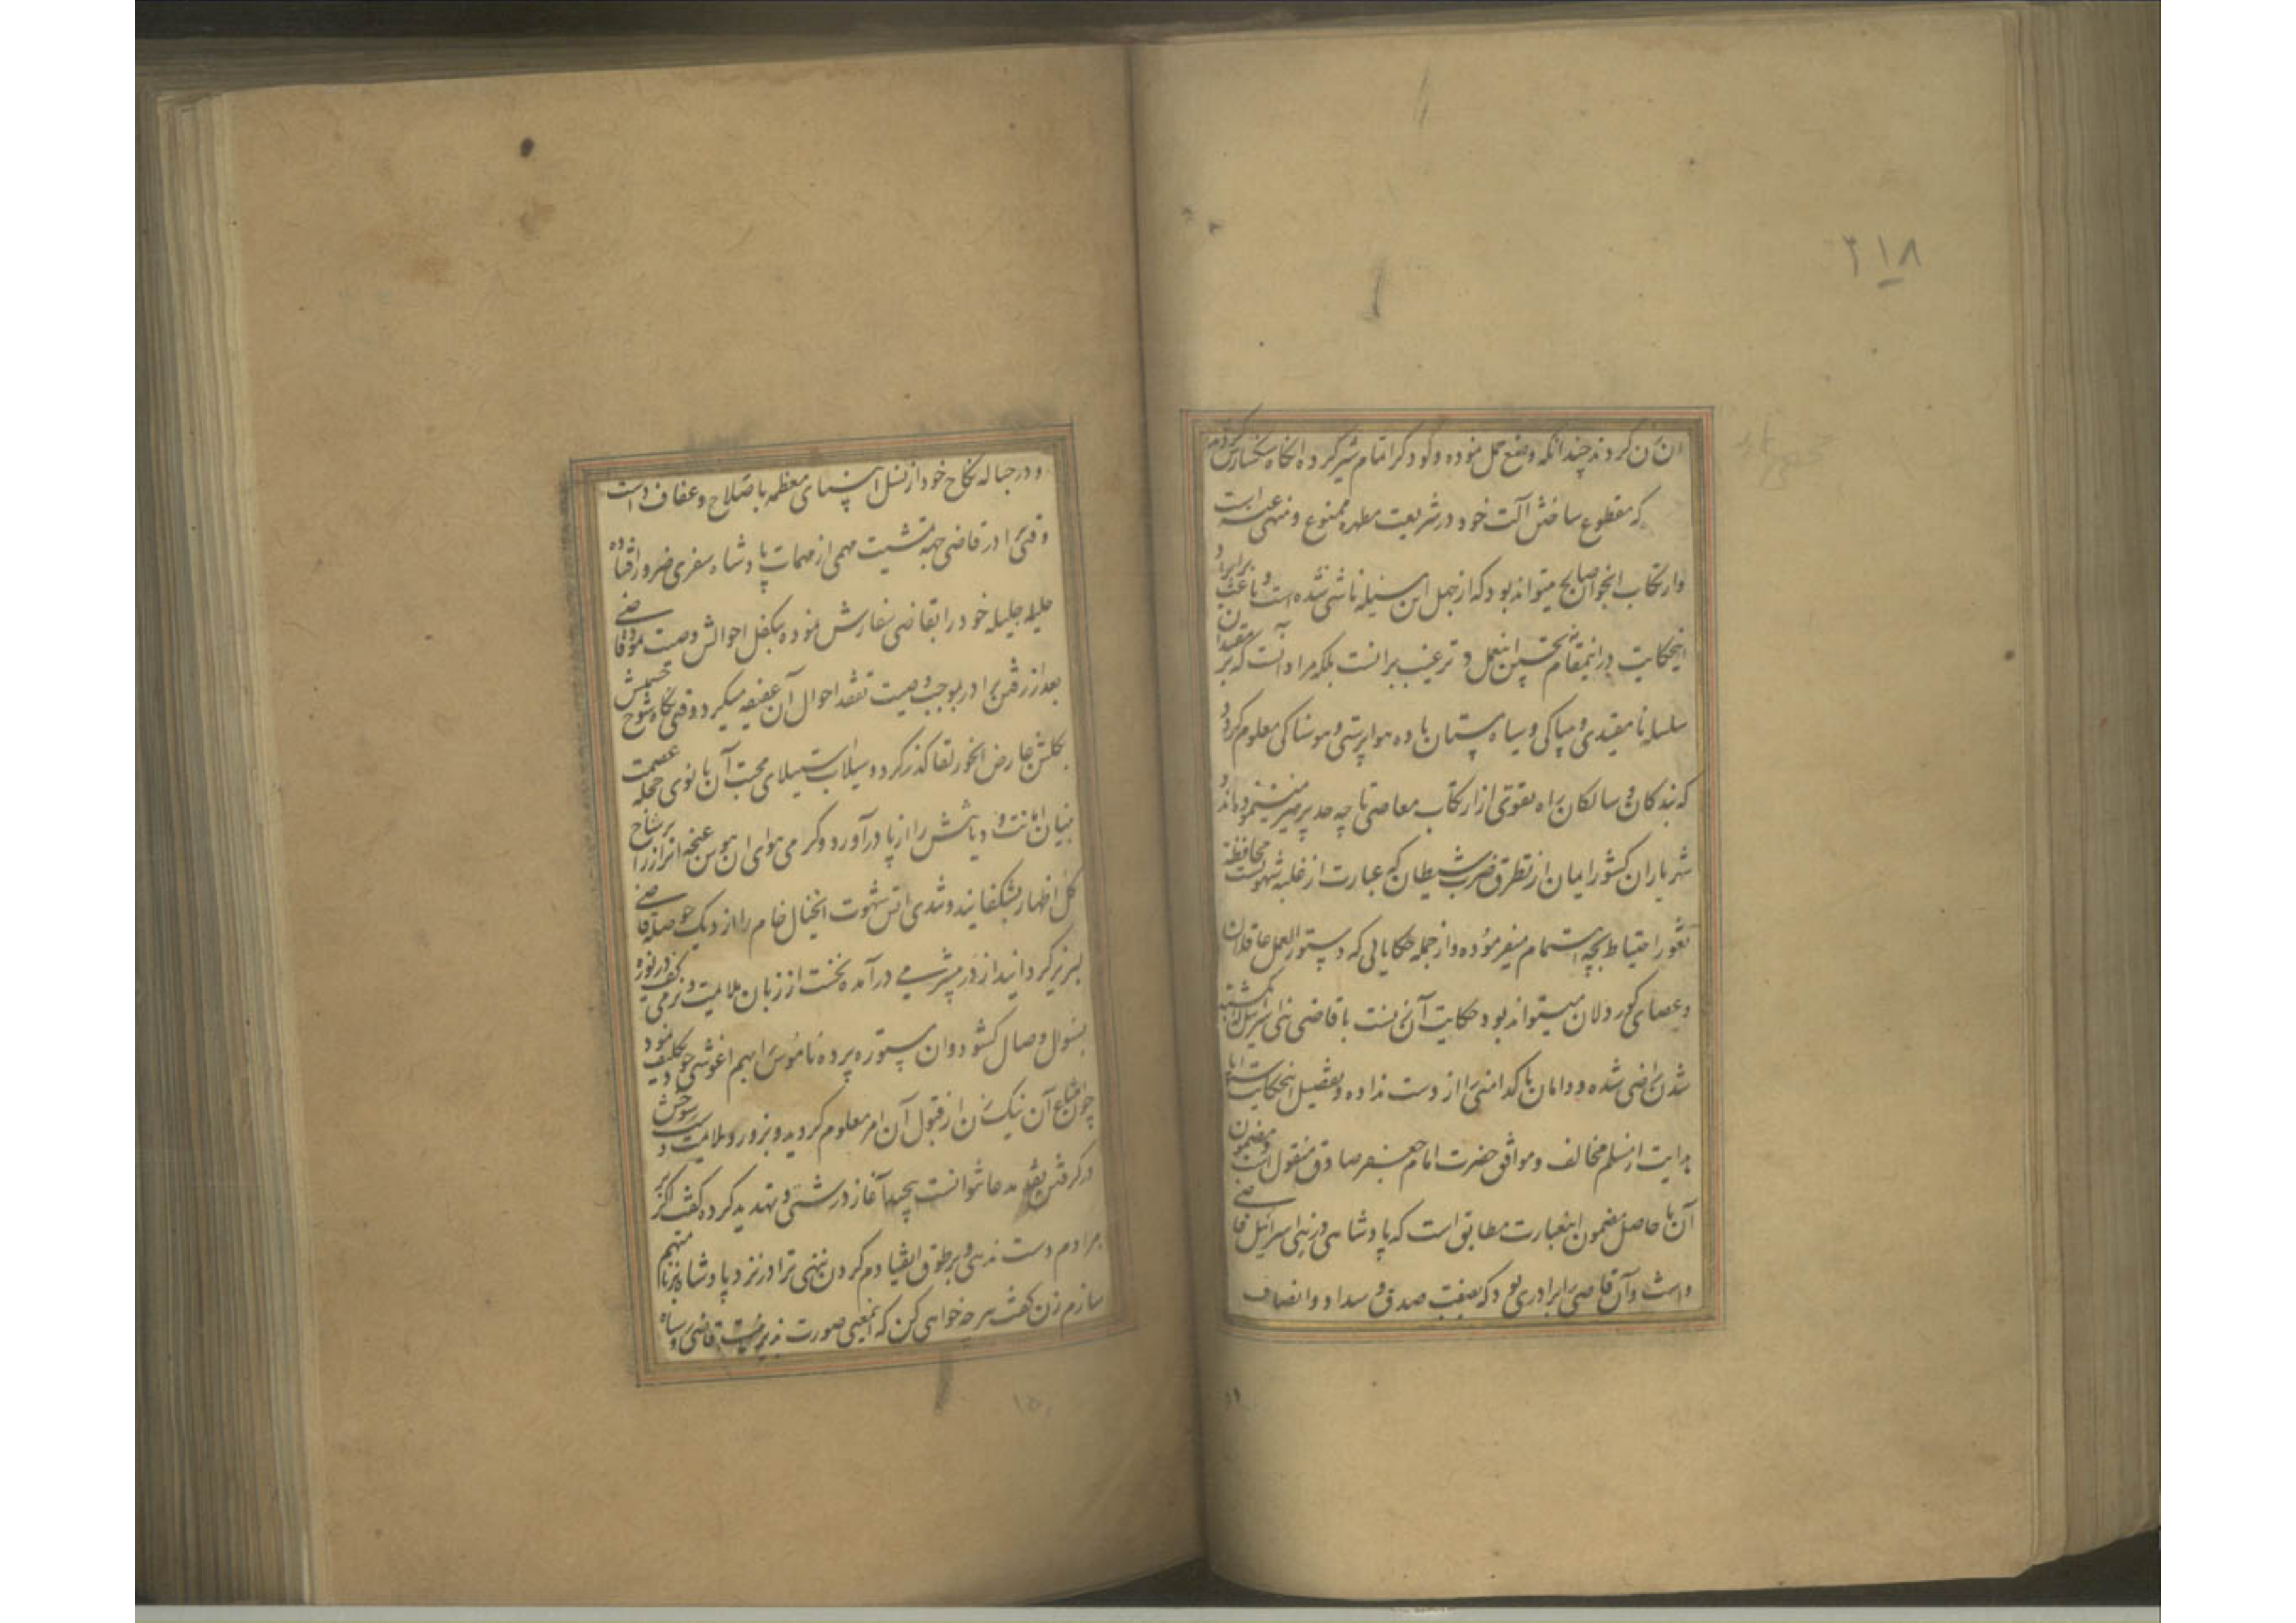 ۲۱۸
ان زن کردند چندانکه وضع حمل نموده و کودکرا تمام شیر کرده انکاه سنکسارش کردند
که مقطوع ساختن آلت خود در شریعت مطهره ممنوع و منهی عنه است
وارتکاب انجوان صایح میتواند بود که از جهل این مسیله ناشی شده است و باعث بر ایراد
اینحکایت در اینمقام نه تحسین اینعمل و ترغیب برانست بلکه مراد آنست که بر مقیدان
سلسله نامقیدی و بیباکی و سیاه مستان باده هواپرستی و هوسناکی معلوم کردد
که بندکان و سالکان راه تقوی از ارتکاب معاصی تا چه حد پرهیز مینموده اند و
شهریاران کشور ایمان از تطرق ضرب شیطان که عبارت از غلبه شهوتست محافظة
ثغور احتیاط بچه اهتمام میفرموده و از جمله حکایاتی که دستور العمل عاقلان
و عصای کور دلان میتواند بود حکایت آن زنست با قاضی بنی اسرائیل که بکشته
شدن راضی شده و دامان پاکدامنی را از دست نداده و تفصیل اینحکایت
بدایت از مسلم مخالف و موافق حضرت امام جعفر صادق منقول است و مضمون
آن با حاصل مضمون اینعبارت مطابق است که پادشاهی در بنی اسرائیل قاضی
داشت و آن قاضی را برادری بود که بصفت صدق و سداد و انصاف
و در حباله نکاح خود از نسل انبیای معظمه با صلاح و عفاف داشت
وقتی برادر قاضی جهة تمشیت مهمی از مهمات پادشاه سفری ضرور افتاده
حلیله جلیله خود را بقاضی سفارش نموده بتکفل احوالش وصیت نمود قاضی
بعد از رفتن برادر بموجب وصیت تفقد احوال آن عفیفه میکرد و وقتی نکاه شوخ چشمش
بکلشن عارض انحور لقا کذر کرد و سیلاب استیلای محبت آن بانوی حجله عصمت
بنیان امانت و دیانتش را از پا درآورد و کرمی هوای ان هوس غنچه انراز را بر شاخ
کل اظهار بشکفانید و تندی اتش شهوت انخیال خام را از دیک حوصله قاضی
لبریز کردانید از در بیشرمی درآمده نخست از زبان ملایمت و نرمی کف دریوزه
بسؤال وصال کشود و ان مستوره پرده ناموس را بهم اغوشی خود تکلیف نمود
چون امتناع آن نیک زن از قبول آن امر معلوم کردید و بزور و ملایمت
در کرفتن نقد مدعا نتوانست پیچید آغاز درشتی و تهدید کرده کفت اکر
بمرادم دست ندهی و بر طوق انقیادم کردن ننهی ترا در نزد پادشاه بزنا متهم
سازم زن کفت هر چه خواهی کن که اینمعنی صورت پذیر نیست قاضی رو سیاه